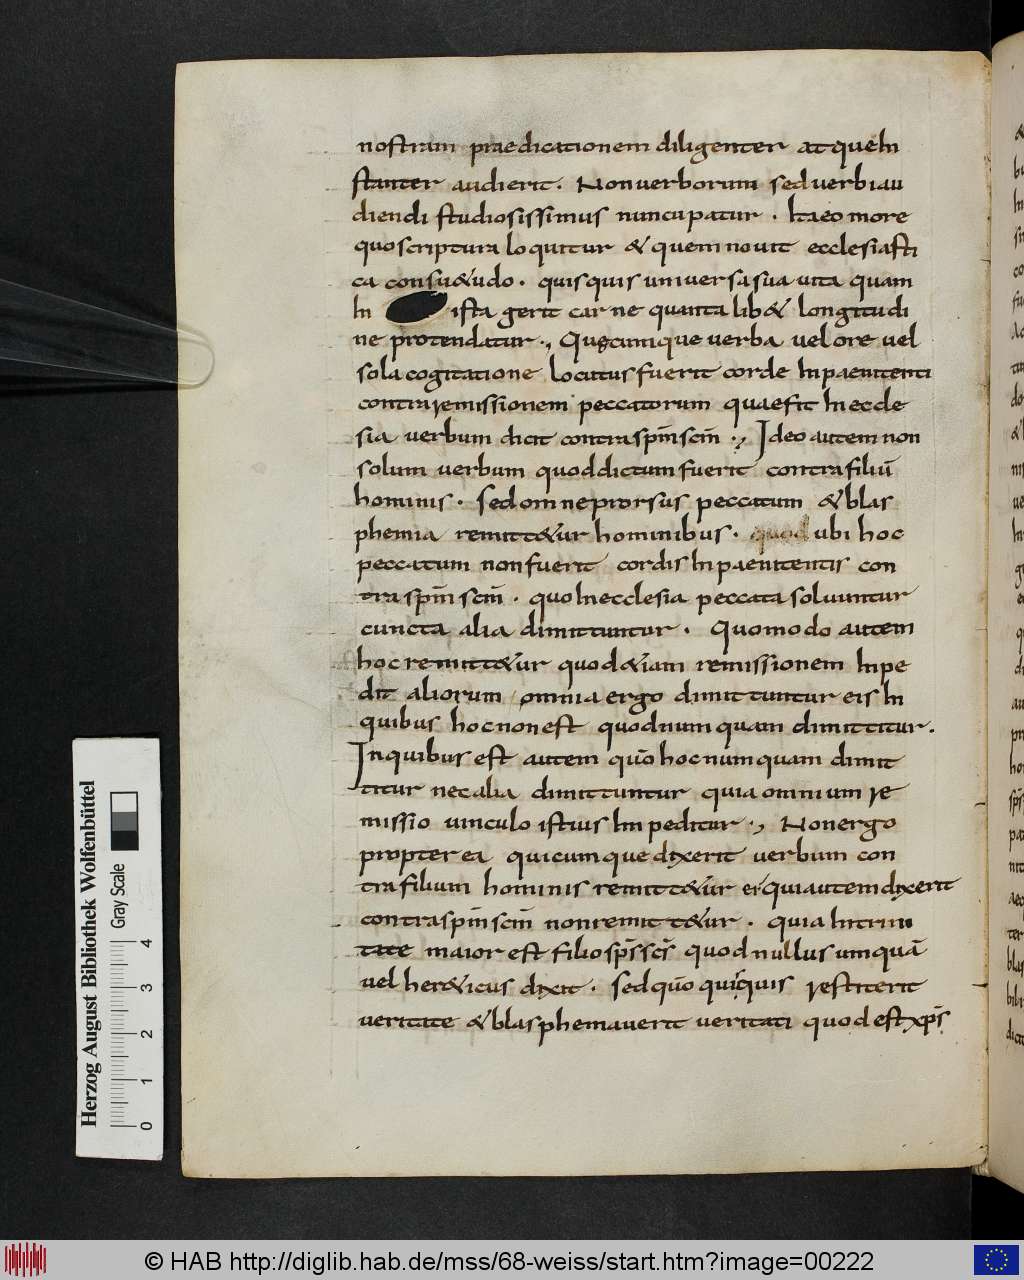 nostram praedicationem diligenter atque in
stanter audierit. Non verborum sed verbi au
diendi studiosissimus nuncupatur. Ita eo more
quo scriptura loquitur & quem novit ecclesiasti
ca consu&udo. quisquis universa sua vita quam
In ista gerit carne quantalib& longitudi
ne protendatur., Quecumque verba vel ore vel
sola cogitatione locutus fuerit corde Inpaenitenti
contra remissionem peccatorum quae fit In eccle
sia verbum dicit contra spm̄ scm̄., Ideo autem non
solum verbum quod dictum fuerit contra filiū
hominis. sed omne prorsus peccatum & blas
phemia remitt&ur hominibus. quod ubi hoc
peccatum non fuerit cordis Inpaenitentis con
tra spm̄ scm̄. quo In ecclesia peccata solvuntur
cuncta alia dimittuntur. Quomodo autem
hoc remitt&ur quod &iam remissionem Inpe
dit aliorum omnia ergo dimittuntur eis In
quibus hoc non est quod numquam dimittitur.
In quibus est autem quō hoc numquam dimit
titur nec alia dimittuntur quia omnium re
missio vinculo istius Impeditur., Non ergo
propterea quicumque dixerit verbum con
tra filium hominis remitt&ur ei qui autem dixerit
contra spm̄ scm̄ non remitt&ur. quia In trini
tate maior est filio sps̄ scs̄ quod nullus umquā
vel her&icus dixit. sed quō quisquis restiterit
veritate & blasphemaverit veritati quod est xps̄
Herzog August Bibliothek Wolfenbüttel
Gray Scale
0 1 2 3 4
© HAB http://diglib.hab.de/mss/68-weiss/start.htm?image=00222